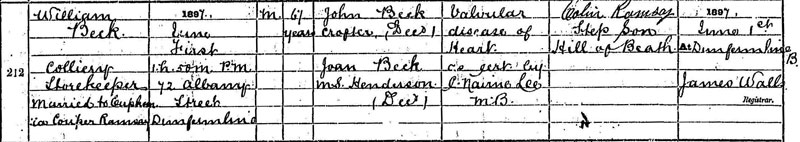 William
Beck
Colliery
Storekeeper
Married to Euphem
ia Couper Ramsay
212
1897.
June
First
1h. 50m. P.M.
72 Albany
Street
Dunfermline
M.
67
years
John Beck
Crofter, (Decd)
Joan Beck
M.S. Henderson
(Decd)
Valvular
disease of
Heart.
As cert by
Nairne Lee
M.B.
Colin Ramsay
Step Son
Hill of Beath
1897.
June 1st
At Dunfermline
James Wall
Registrar.
B